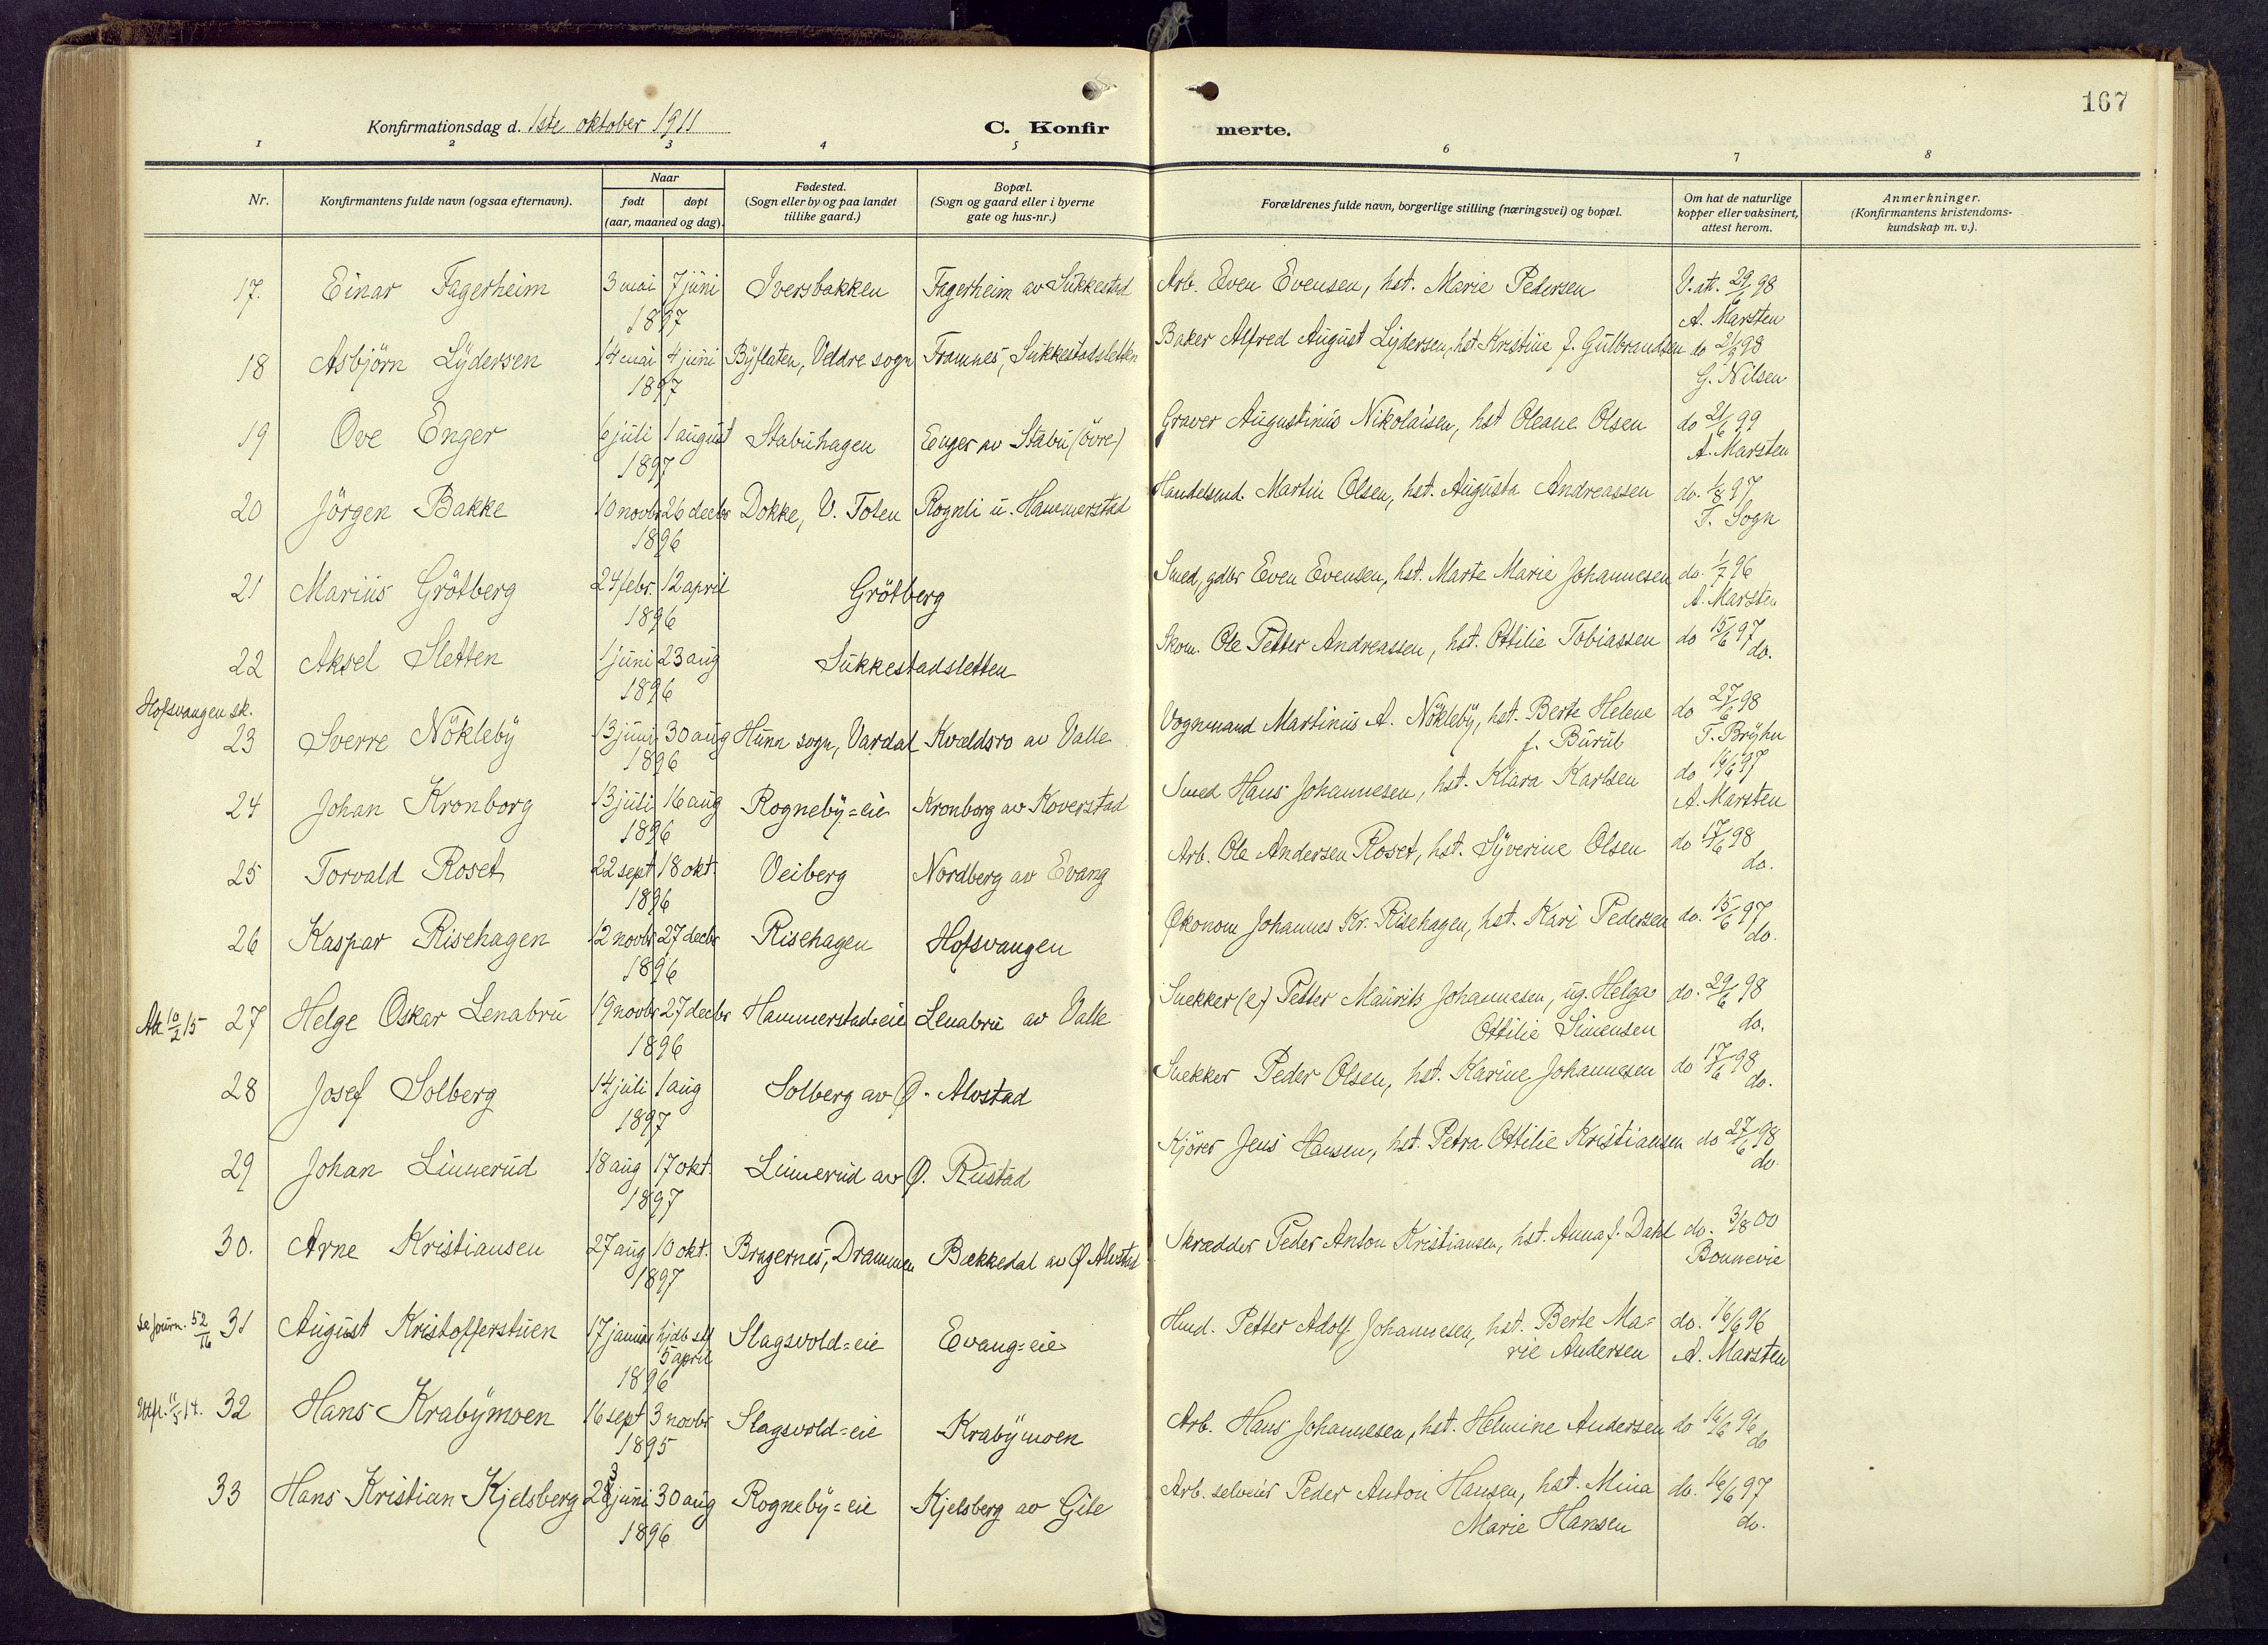 167
Konfirmationsdag d. 1ste oktober 1911 C. Konfir merte.
1 2 3 4 5 6 7 8
Nr. Konfirmantens fulde navn (ogsaa efternavn). Naar født døpt (aar, maaned og dag). Fødested. (Sogn eller by og paa landet tillike gaard.) Bopæl. (Sogn og gaard eller i byerne gate og hus-nr.) Forældrenes fulde navn, borgerlige stilling (næringsvei) og bopæl. Om hat de naturlige kopper eller vaksinert, attest herom. Anmerkninger. (Konfirmantens kristendoms- kundskap m. v.).
17. Einar Fagerheim 3 mai 7 juni Iversbakken Fagerheim av Sukkestad Arb. Even Evensen, hst. Marie Pedersen V. att. 29/6 98
1897 A. Marsten
18 Asbjörn Lydersen 14 mai 4 juni Byflaten, Veldre sogn Framnes, Sukkestadsletten Baker Alfred August Lydersen, hst Kristine f. Gulbrandsen do 2/9 98
1897 G. Nilsen
19 Ove Enger 6 juli 1 august Stabuhagen Enger av Stabu (övre) Graver Augustinus Nikolaisen, hst Oleane Olsen do 21/6 99
1897 A. Marsten
20 Jörgen Bakke 10 novbr 26 decbr Dokke, V. Toten Rognli u. Hammerstad Handelsmd. Martin Olsen, hst. Augusta Andreassen do. 1/8 97
1896 T. Sogn
21 Marius Grötberg 24 febr. 12 april Grötberg Smed, gdbr Even Evensen, hst. Marte Marie Johannesen do. 1/7 96
1896 A. Marsten
22 Aksel Sletten 1 juni 23 aug Sukkestadsletten Skom. Ole Petter Andreassen, hst. Ottilie Tobiassen do 15/6 97
1896 do.
Hofsvangen sk.
23 Sverre Nökleby 13 juni 30 aug Hunn sogn, Vardal Kvældsro av Valle Vognmand Martinus A. Nökleby, hst. Berte Helene do 27/6 98
1896 f. Burul T. Bryhn
24 Johan Kronborg 13 juli 16 aug Rogneby=eie Kronborg av Koverstad Smed Hans Johannesen, hst. Klara Karlsen do 16/6 97
1896 A. Marsten
25 Torvald Roset 22 sept 18 okt. Veiberg Nordberg av Evang Arb. Ole Andersen Roset, hst. Syverine Olsen do 17/6 98
1896 do.
26 Kaspar Risehagen 12 novbr 27 decbr Risehagen Hofsvangen Økonom Johannes Kr. Risehagen, hst. Kari Pedersen do. 15/6 97
1896 do.
Att 10/2 15 27 Helge Oskar Lenabru 19 novbr 27 decbr Hammerstad=eie Lenabru av Valle Snekker (e) Petter Maurits Johannesen, ug. Helga do. 29/6 98
1896 Ottilie Simensen do.
28 Josef Solberg 14 juli 1 aug Solberg av Ø. Alvstad Snekker Peder Olsen, hst. Karine Johannesen do 17/6 98
1897 do.
29 Johan Linnerud 18 aug 17 okt. Linnerud av Ø. Rustad Kjörer Jens Hansen, hst. Petra Ottilie Kristiansen do 27/6 98
1897 do.
30. Arne Kristiansen 27 aug 10 okt. Bragernes, Drammen Bækkedal av Ø Alvstad Skrædder Peder Anton Kristiansen, hst. Anna f. Dahl do. 3/8 00
1897 Bonnevie
se journ. 52/16 31 August Kristofferstuen 17 januar hjdb stf Slagsvold=eie Evang=eie Hmd. Petter Adolf Johannesen, hst. Berte Ma= do. 16/6 96
5 april rie Andersen A. Marsten
1896
Utfl. 11/5 14. 32 Hans Krabymoen 16 sept 3 novbr Slagsvold=eie Krabymoen Arb. Hans Johannesen, hst. Helmine Andersen do 16/6 96
1895 do
33 Hans Kristian Kjelsberg 23 juni 30 aug Rogneby=eie Kjelsberg av Gile Arb. selveier Peder Anton Hansen, hst. Mina do. 16/6 97
1896 Marie Hansen do.